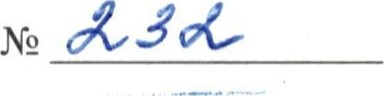 № 232